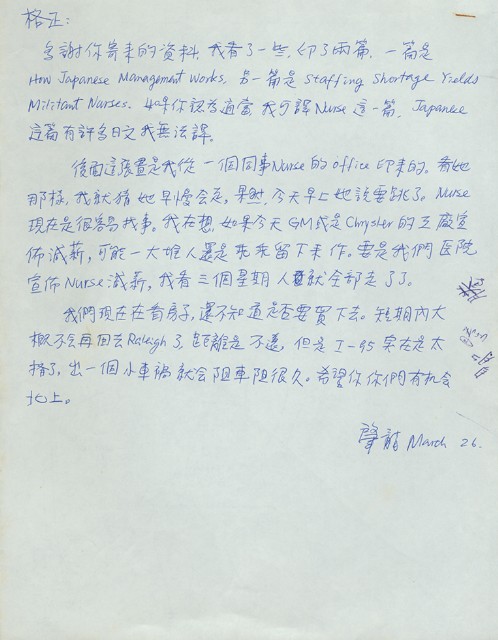 格正：
多謝你寄來的资料，我看了一些，印了兩篇，一篇是
How Japanese Management Works, 另一篇是 Staffing Shortage Yields
Militant Nurses. 如果你認為適當 我可譯Nurse 這一篇，Japanese
這篇有許多日文我無法譯。
後面這張畫是我從一個同事Nurse 的 office 印來的。看她
那樣，我就猜她早晚会走，果然，今天早上她說要跳了。Nurse
現在是很容易找事。我在想，如果今天GM或是Chrysler的工廠宣
佈減薪，可能一大堆人還是乖乖留下來作。要是我們医院
宣佈Nurse減薪，我看三個星期人就全部走了了。
我們現在在看房子，還不知道是否要買下去。短期內大
概不会再回去Raleigh了，距離是不遠，但是I-95实在是太
擠了，出一個小車禍就会阻車阻很久。希望你們有机会
北上。
聲龍 March 26.